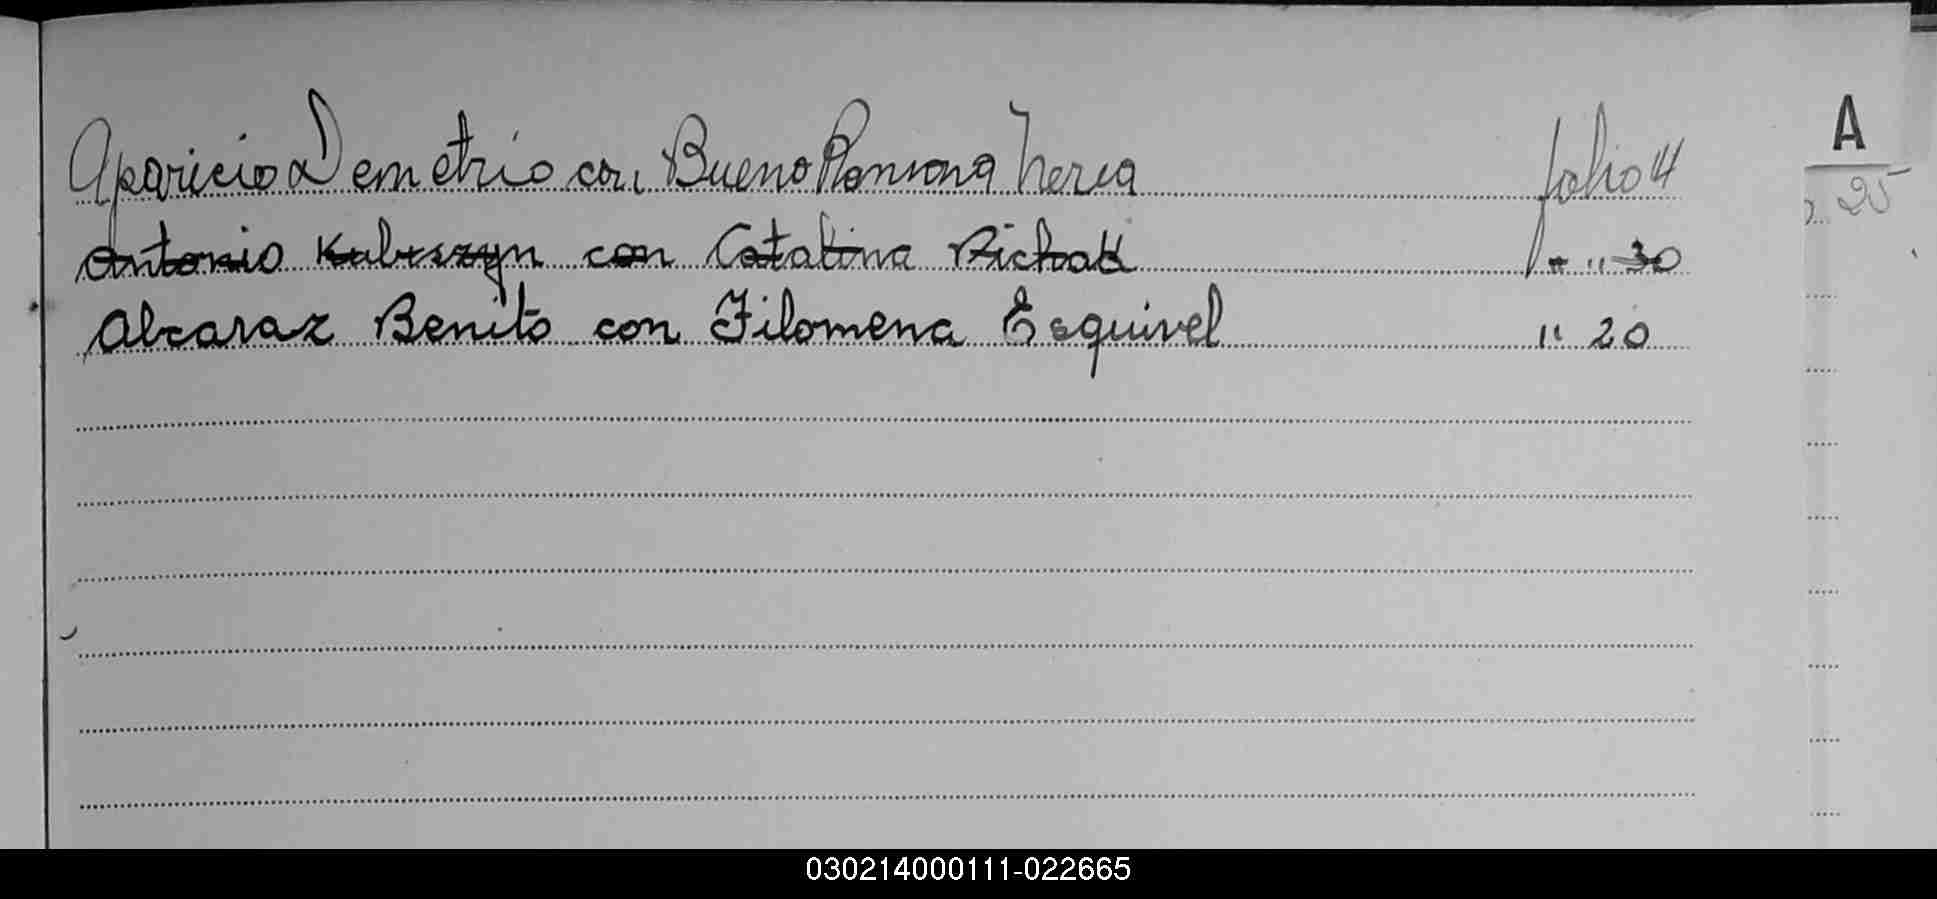 A
Aparicio Demetrio con Bueno Ramona Nerea folio 4
25
Antonio Kubiszyn con Catalina Richak " " 30
Alcaraz Benito con Filomena Esquivel " 20
030214000111-022665